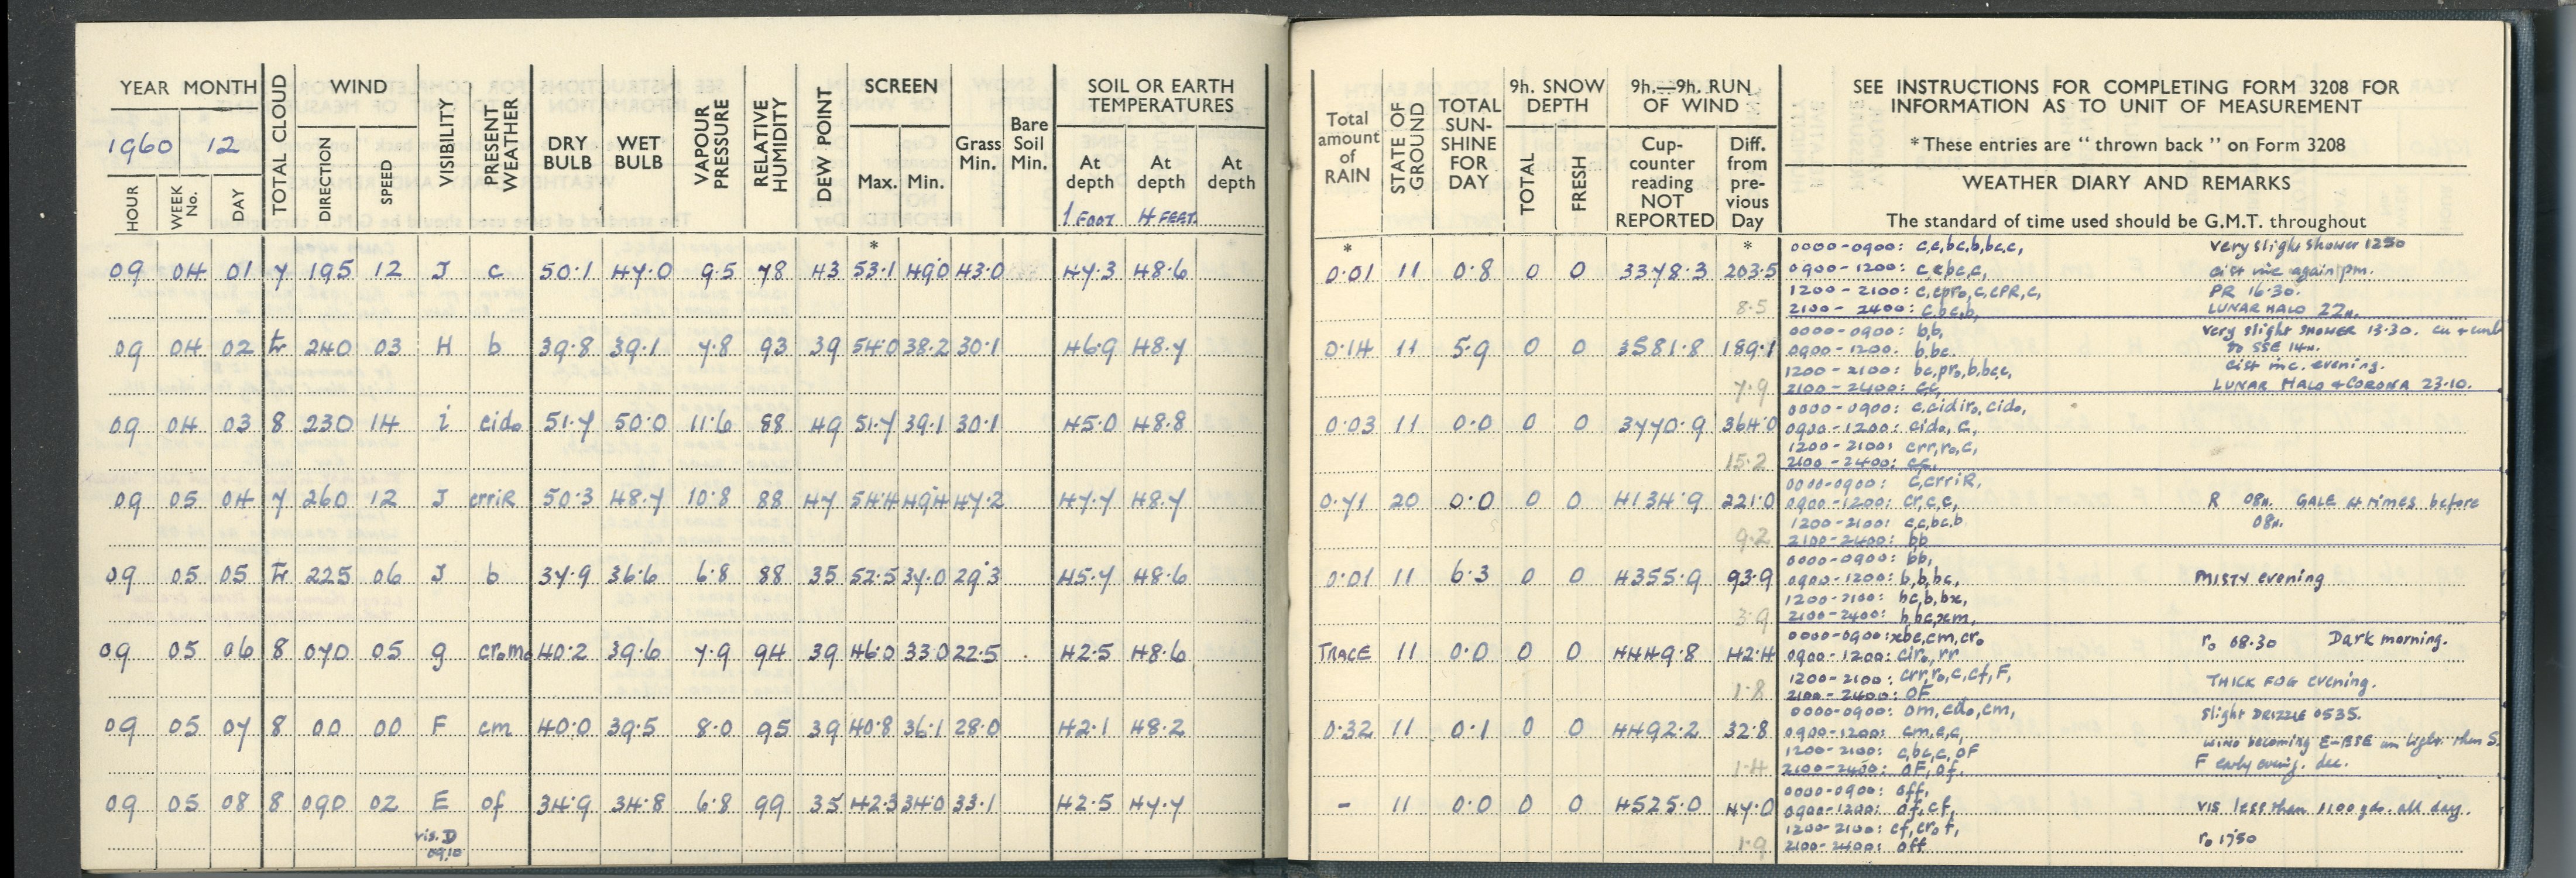 YEAR MONTH
1960 12
HOUR WEEK No. DAY TOTAL CLOUD WIND DIRECTION SPEED VISIBILITY PRESENT WEATHER DRY BULB WET BULB VAPOUR PRESSURE RELATIVE HUMIDITY DEW POINT SCREEN Max. Min. Grass Min. Bare Soil Min. SOIL OR EARTH TEMPERATURES At depth 1 FOOT At depth 4 FEET At depth
*
09 04 01 7 195 12 J c 50.1 47.0 9.5 78 43 53.1 49.0 43.0 47.3 48.6
09 04 02 tr 240 03 H b 39.8 39.1 7.8 93 39 54.0 38.2 30.1 46.9 48.7
09 04 03 8 230 14 i cido 51.7 50.0 11.6 88 49 51.7 39.1 30.1 45.0 48.8
09 05 04 7 260 12 J crriR 50.3 48.7 10.8 88 47 54.4 49.4 47.2 47.7 48.7
09 05 05 tr 225 06 J b 37.9 36.6 6.8 88 35 52.5 37.0 29.3 45.7 48.6
09 05 06 8 070 05 g cromo 40.2 39.6 7.9 94 39 46.0 33.0 22.5 42.5 48.6
09 05 07 8 00 00 F cm 40.0 39.5 8.0 95 39 40.8 36.1 28.0 42.1 48.2
09 05 08 8 090 02 E of 34.9 34.8 6.8 99 35 42.3 34.0 33.1 42.5 47.7
vis. D
09.10
Total amount of RAIN STATE OF GROUND TOTAL SUN-SHINE FOR DAY 9h. SNOW DEPTH TOTAL FRESH 9h.—9h. RUN OF WIND Cup-counter reading NOT REPORTED Diff. from pre-vious Day
SEE INSTRUCTIONS FOR COMPLETING FORM 3208 FOR
INFORMATION AS TO UNIT OF MEASUREMENT
* These entries are " thrown back " on Form 3208
WEATHER DIARY AND REMARKS
The standard of time used should be G.M.T. throughout
* *
0.01 11 0.8 0 0 3378.3 203.5
8.5
0000-0900: c,c,bc,b,bc,c, Very slight shower 1250
0900-1200: c,c,bc,c, cist inc again pm.
1200-2100: c,cpro,c,cPR,c, PR 16.30.
2100-2400: c,bc,b, LUNAR HALO 22H.
0.14 11 5.9 0 0 3581.8 189.1
7.9
0000-0900: b,b, Very slight SHOWER 13.30. cu + cunb
0900-1200: b,bc. to SSE 14H.
1200-2100: bc,pro,b,bc,c, cist inc. evening.
2100-2400: cc, LUNAR HALO + CORONA 23.10.
0.03 11 0.0 0 0 3770.9 364.0
15.2
0000-0900: c,cidiro,cido,
0900-1200: cido, c,
1200-2100: crr,ro,c,
2100-2400: cc,
0.71 20 0.0 0 0 4134.9 221.0
9.2
0000-0900: c,crriR,
0900-1200: cr,c,c, R 08H. GALE at times before
1200-2100: c,c,bc,b 08H.
2100-2400: bb
0.01 11 6.3 0 0 4355.9 93.9
3.9
0000-0900: bb,
0900-1200: b,b,bc, MISTY evening
1200-2100: bc,b,bx,
2100-2400: b,bc,xm,
TRACE 11 0.0 0 0 4449.8 42.4
1.8
0000-0900: xbc,cm,cro ro 08.30 Dark morning.
0900-1200: ciro,rr
1200-2100: crr,ro,c,cf,F, THICK FOG evening.
2100-2400: OF
0.32 11 0.1 0 0 4492.2 32.8
1.4
0000-0900: om,cdo,cm, Slight DRIZZLE 0535.
0900-1200: cm,c,c, WIND becoming E-ESE light. then S.
1200-2100: c,bc,c,oF F early
2100-2400: OF,of.
- 11 0.0 0 0 4525.0 47.0
1.9
0000-0900: off,
0900-1200: of,cf, VIS less than 1100 yds. all day.
1200-2100: cf,cro f, ro 1750
2100-2400: off